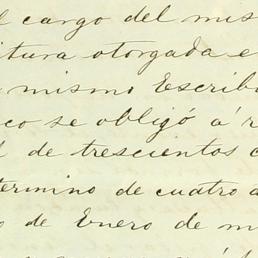 l cargo del mis
itura otorgada e
mismo Escriba
co se obligó á r
l de trescientos c
termino de cuatro a
o de Enero de m